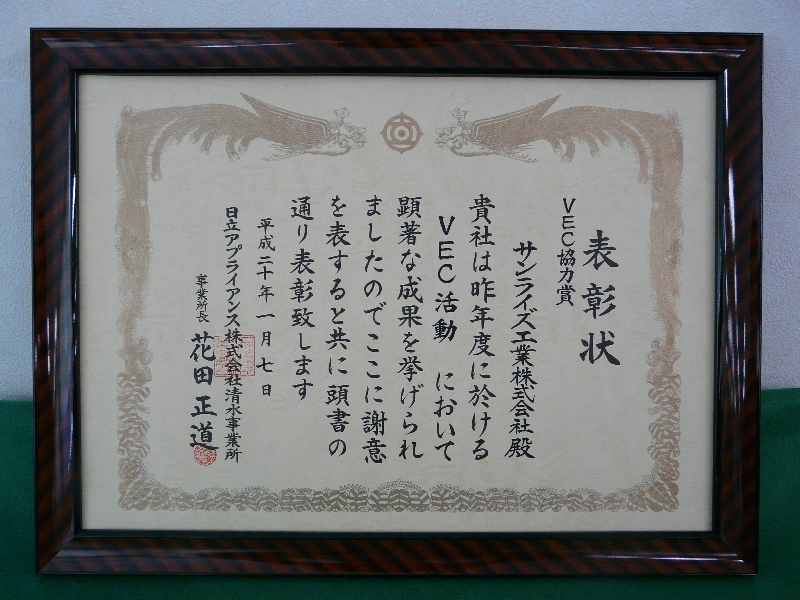 表彰状
VEC協力賞
サンライズ工業株式会社殿
貴社は昨年度に於ける
VEC活動 において
顕著な成果を挙げられ
ましたのでここに謝意
を表すると共に頭書の
通り表彰致します
平成二十年一月七日
日立アプライアンス株式会社清水事業所
事業所長 花田正道